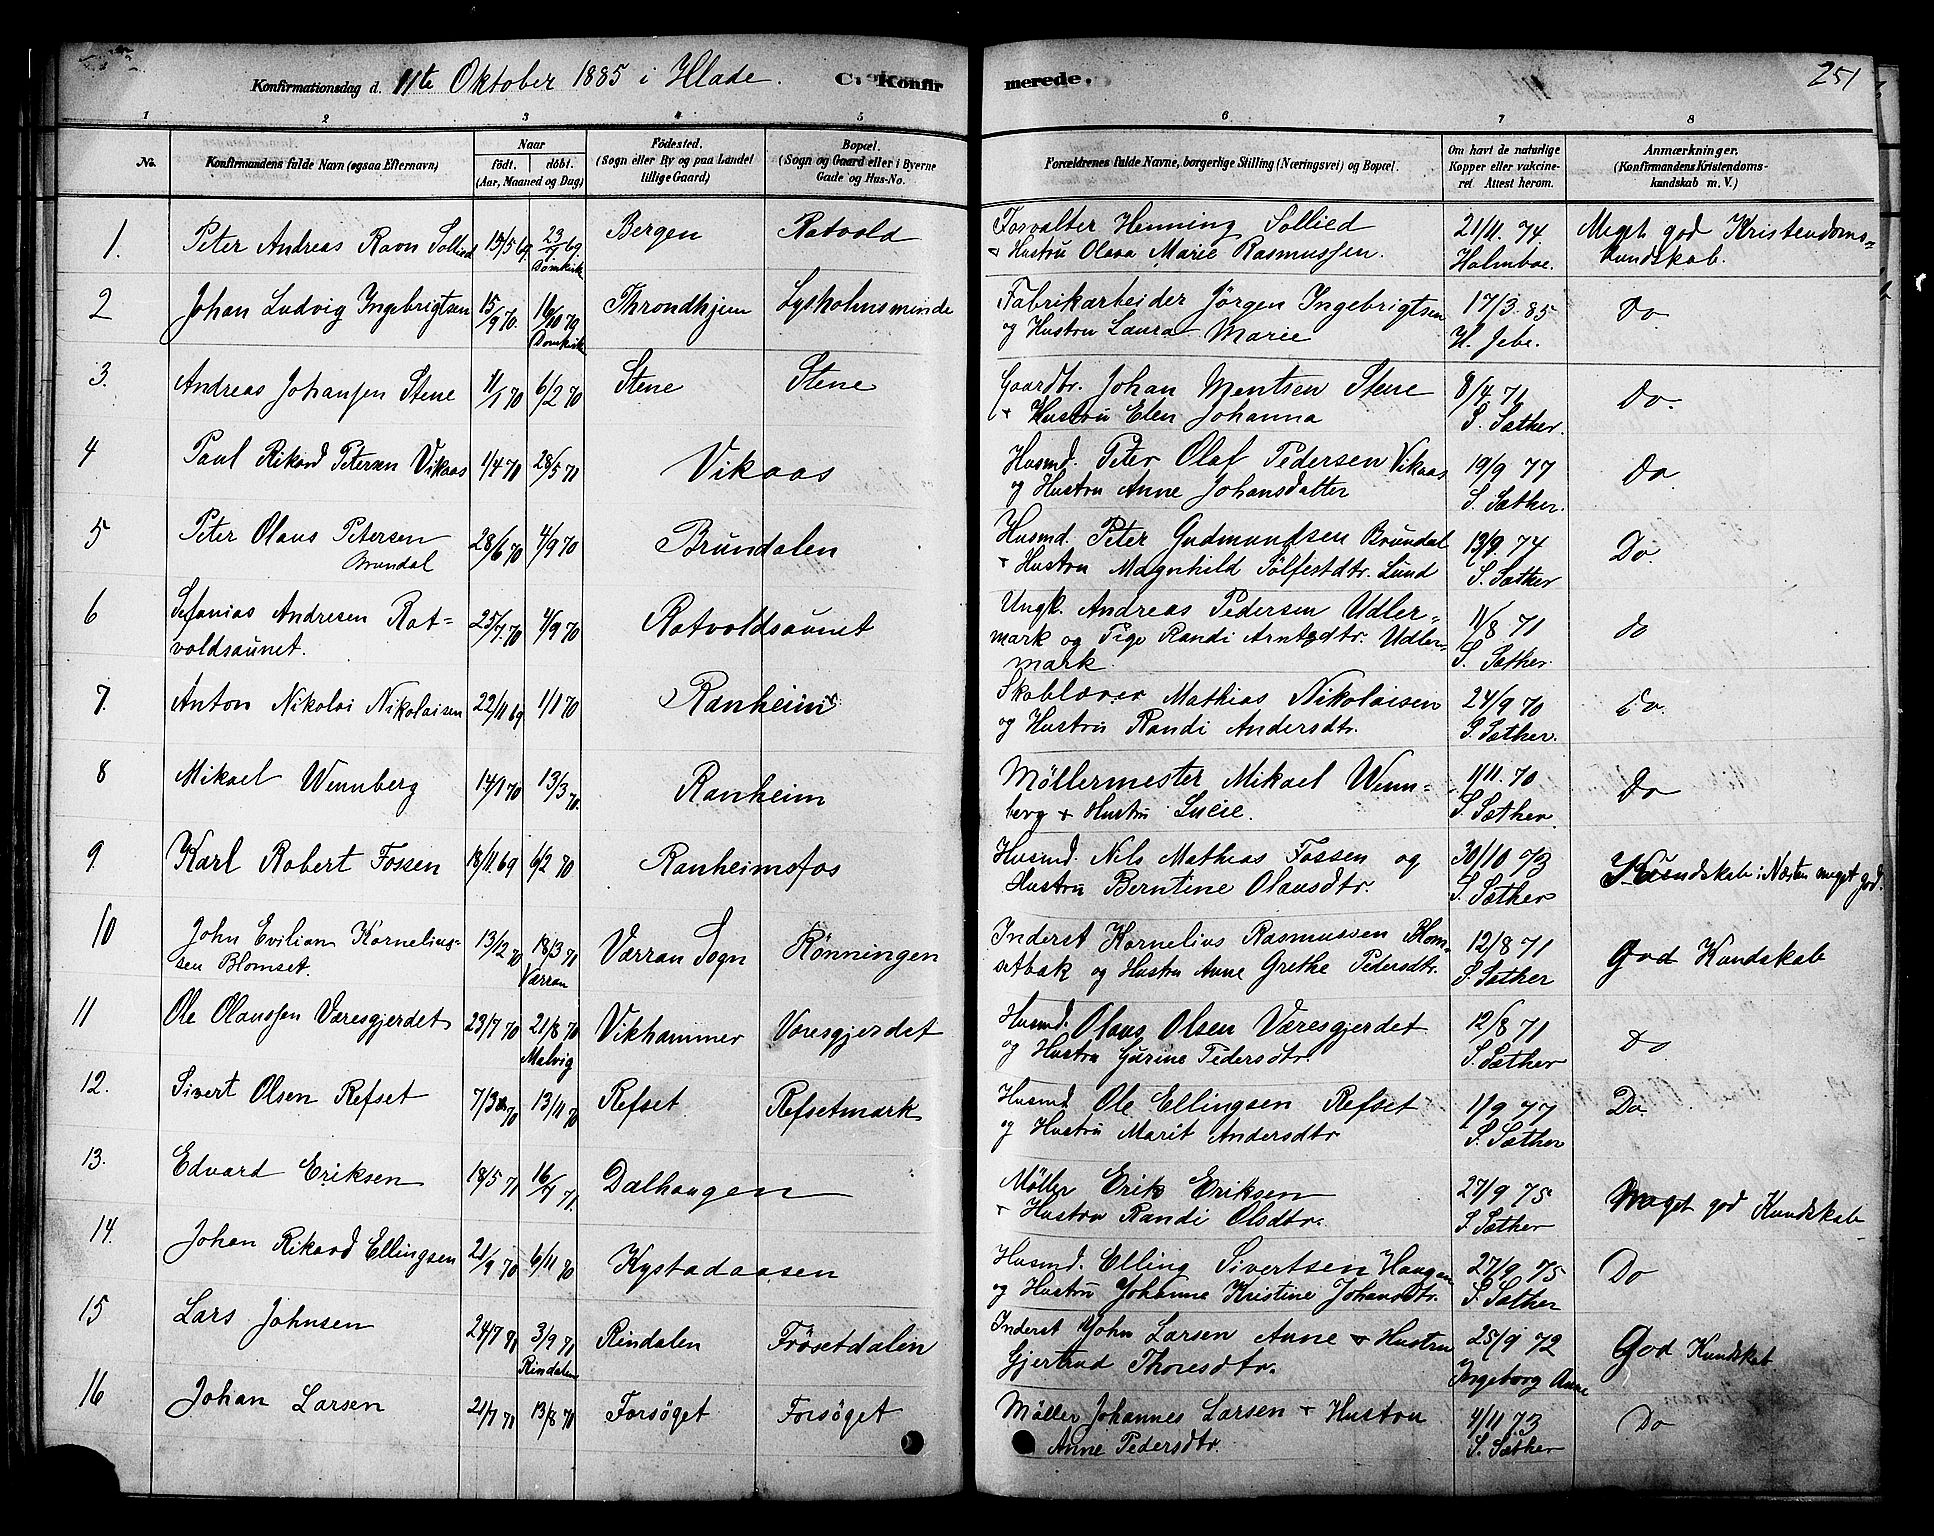 Konfirmationsdag d. 11te Oktober 1885 i Hlade. C. Konfirmerede. 251
1 2 3 4 5 6 7 8
No. Konfirmandens fulde Navn (ogsaa Efternavn) Naar født. døbt. (Aar, Maaned og Dag) Fødested. (Sogn eller By og paa Landet tillige Gaard) Bopæl. (Sogn og Gaard eller i Byerne Gade og Hus-No. Forældrenes fulde Navne, borgerlige Stilling (Næringsvei) og Bopæl. Om havt de naturlige Kopper eller vakcineret Attest herom. Anmærkninger. (Konfirmandens Kristendomskundskab m. V.)
1. Peter Andreas Ravn Sollied 15/5 69. 23/9 69. Bergen Rotvold Forvalter Henning Sollied 21/11 74. Meget god Kristendoms-
Domkirk + Hustru Olava Marie Rasmussen. Holmboe. kundskab.
2 Johan Ludvig Ingebrigtsen 15/9 70. 16/10 70 Throndhjem Lysholmsminde Fabrikarbeider Jörgen Ingebrigtsen 17/3. 85 Do
Domkirk og Hustru Laura Marie H. Jebe.
3. Andreas Johansen Stene 11/1 70 6/2 70 Stene Stene Gaardbr. Johan Mentsen Stene 8/4 71 Do.
+ Hustru Elen Johanna S. Sæther.
4 Paul Rikard Petersen Vikaas 1/4 70 28/5 70 Vikaas Husmd. Peter Olaf Pedersen Vikaas 19/9 77 Do
og Hustru Anne Johansdatter S. Sæther.
5 Peter Olaus Petersen 28/6 70 4/9 70 Brundalen Husmd. Peter Gudmundsen Brundal 13/9. 74 Do.
Brundal + Hustru Magnhild Sölfestdtr. Lund S. Sæther
6 Sefanias Andresen Rot- 25/7. 70 4/9 70 Rotvoldsaunet Ungk. Andreas Pedersen Udler- 11/8 71 do
voldsaunet. mark og Pige Randi Arntsdtr. Udler- S. Sæther.
mark.
7. Anton Nikolai Nikolaisen 22/11 69 1/1 70 Ranheim Skoblærer Mathias Nikolaisen 24/9 70 Do.
og Hustru Randi Andersdtr. S. Sæther.
8 Mikael Wennberg 14/1 70 13/3 70. Ranheim Möllermester Mikael Wenn- 1/11. 70 Do
berg + Hustru Lucie. S. Sæther.
9 Karl Robert Fossen 18/11 69 6/2 70 Ranheimsfos Husmd. Nils Mathias Fossen og 30/10 73 Kundskab: Næsten meget god.
Hustru Berntine Olausdtr. S. Sæther
10 John Evilian Kornelius- 13/12 70 18/3 71 Værran Sogn Rönningen Inderst Kornelius Rasmussen Blom- 12/8 71 God Kundskab
sen Blomset. Værran setbak og Hustru Anne Grethe Pedersdtr. S. Sæther
11 Ole Olaussen Væresgjerdet 23/7 70 21/8 70 Vikhammer Væresgjerdet Husmd. Olaus Olsen Væresgjerdet 12/8 71 Do
Malvig og Hustru Gurine Pedersdtr. S. Sæther
12. Sivert Olsen Refset 7/3 70 13/11 70 Refset Refsetmark Husmd Ole Ellingsen Refset 1/9 77 Do
og Hustru Marit Andersdtr S. Sæther
13. Edvard Eriksen 18/5 71 16/7 71. Dalhaugen Möller Erik Eriksen 27/9 75 Meget god Kundskab
+ Hustru Randi Olsdtr. S. Sæther
14. Johan Rikard Ellingsen 21/9 70 6/11 70 Kystadaasen Husmd. Elling Sivertsen Haugen 27/9 75 Do
og Hustru Johanna Kristine Johansdtr. S. Sæther
15 Lars Johnsen 24/7 71 3/9 71 Rindalen Frösetdalen Inderst John Larsen Anne + Hustru 25/9 72 God Kundskab
Rindalen Gjertrud Thoresdtr. Ingeborg Aune
16 Johan Larsen 21/7 70 13/8 70 Forsöget Forsöget Möller Johannes Larsen + Hustru 4/11 73 Do
Anne Pedersdtr. S. Sæther